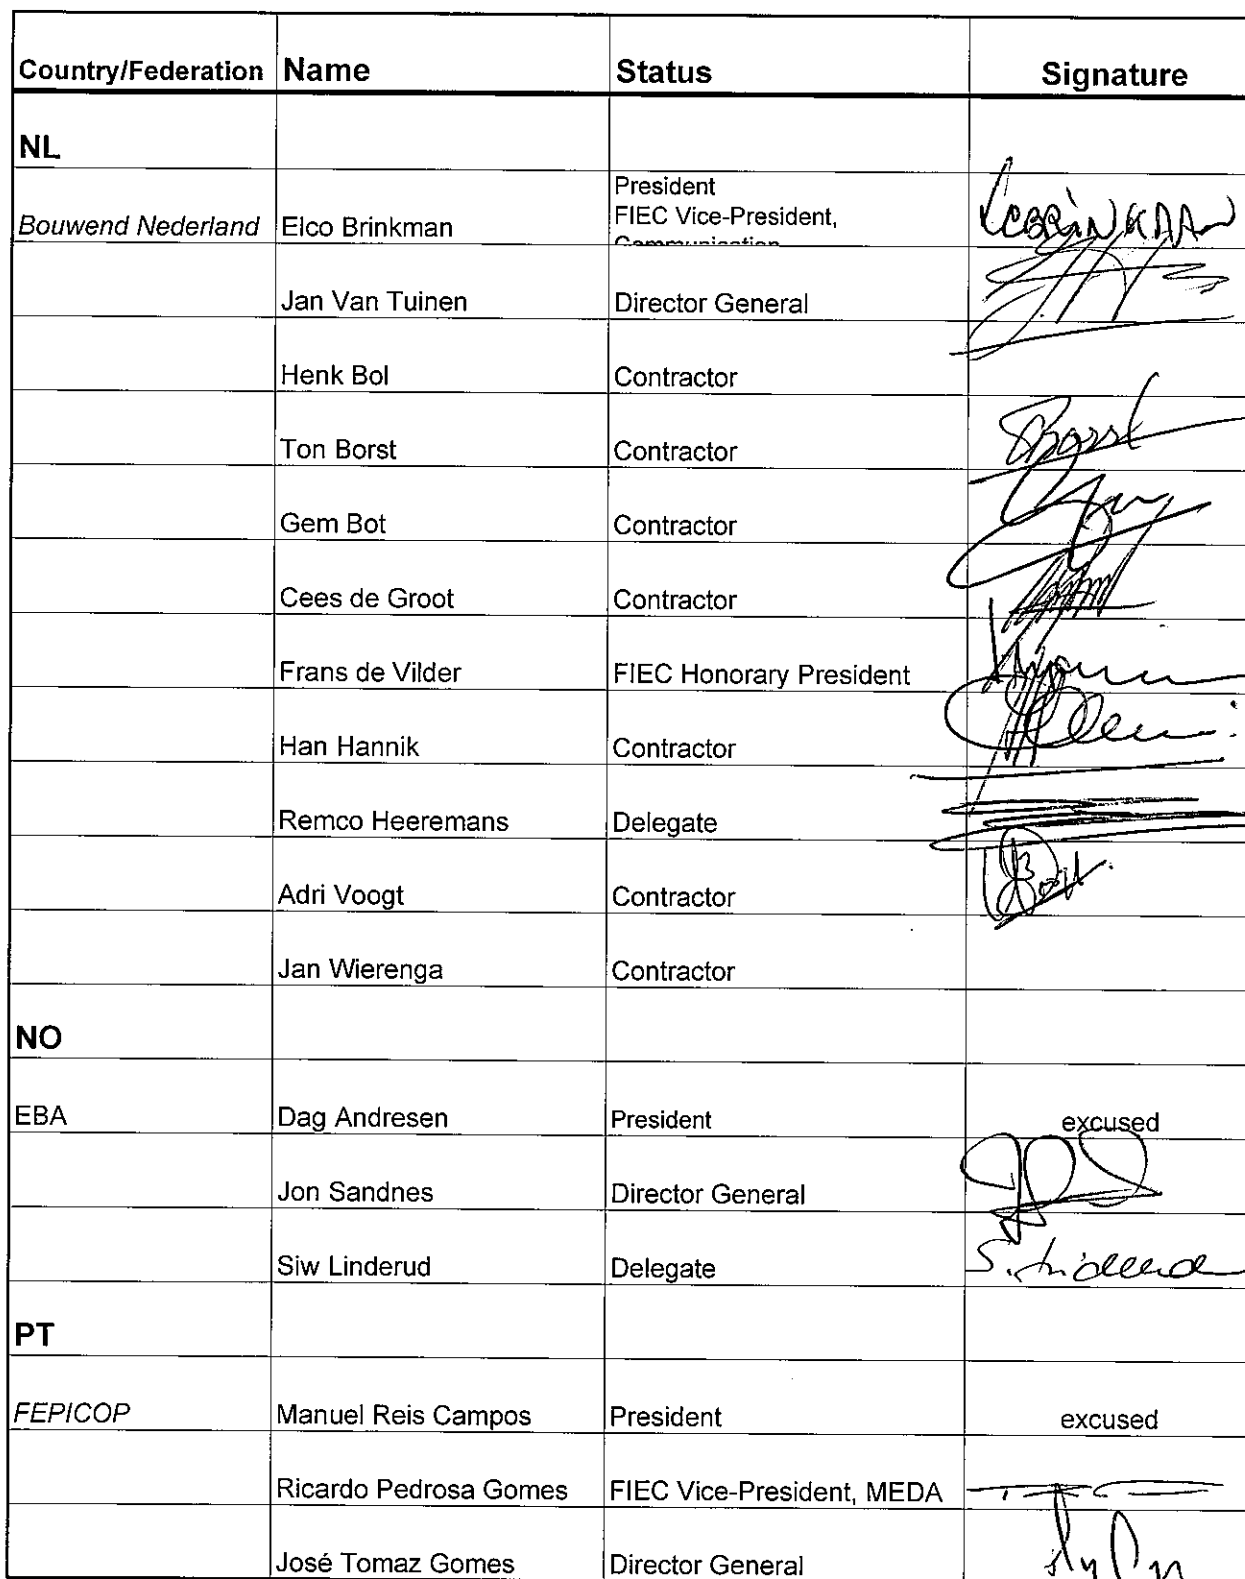 Country/Federation Name Status Signature
NL
President
FIEC Vice-President,
Bouwend Nederland Elco Brinkman Communication
Jan Van Tuinen Director General
Henk Bol Contractor
Ton Borst Contractor Borst
Gem Bot Contractor
Cees de Groot Contractor
Frans de Vilder FIEC Honorary President
Han Hannik Contractor
Remco Heeremans Delegate
Adri Voogt Contractor
Jan Wierenga Contractor
NO
EBA Dag Andresen President excused
Jon Sandnes Director General
Siw Linderud Delegate
PT
FEPICOP Manuel Reis Campos President excused
Ricardo Pedrosa Gomes FIEC Vice-President, MEDA
José Tomaz Gomes Director General